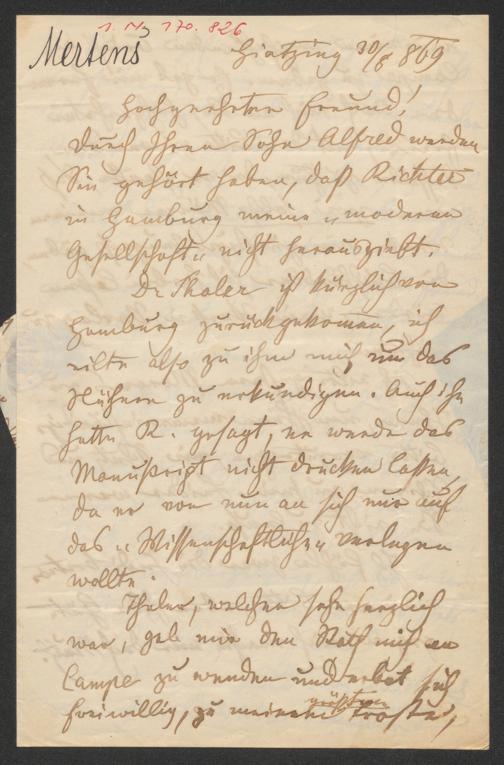 I. N. 170.826
Mertens
Hietzing 30/8 869
Hochgeehrter Freund!
Durch Ihren Sohn Alfred werden
Sie gehört haben, daß Richter
in Hamburg meine „moderne
Gesellschaft" nicht herausgiebt.
Dr Thaler ist kürzlich von
Hamburg zurückgekommen, ich
eilte also zu ihm mich um das
Nähere zu erkundigen. Auch ihm
hatte R. gesagt, er werde das
Manuskript nicht drucken lassen,
da er von nun an sich nur auf
das „Wissenschaftliche" verlegen
wollte.
Thaler, welcher sehr herzlich
war, gab mir den Rath mich an
Campe zu wenden und erbot sich
freiwillig, zu meinem größten Troste,